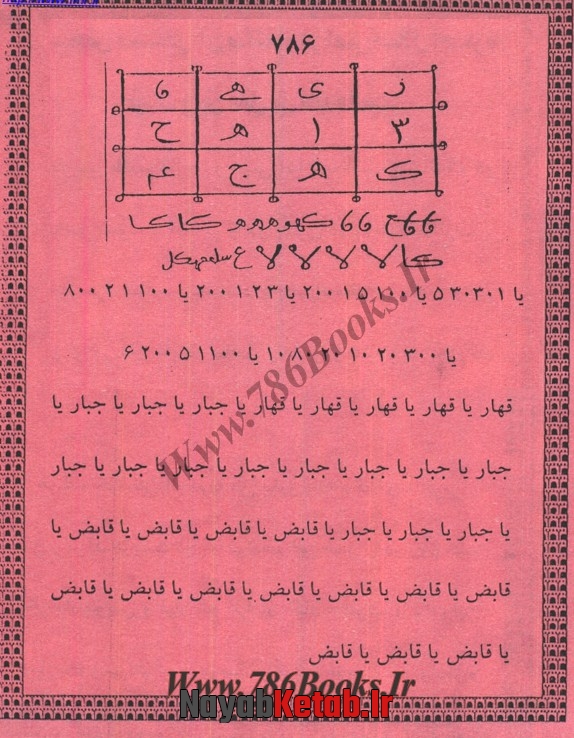 ۷۸۶
ز ی هے ق
۳ ا ه ح
ک ه ج عم
کا لا لا لا لا ع
یا ۳۰۳۰۱ ۵ یا ۱۰۰ ۱ ۵ ۲۰۰ یا ۲۳ ۱ ۲۰۰ یا ۱۰۰ ۱ ۲ ۸۰۰
یا ۳۰۰ ۲۰ ۱۰ ۲۰ ۸۰ ۱۰ یا ۱۱۰۰ ۵ ۲۰۰ ۶
قهار یا قهار یا قهار یا قهار یا قهار یا جبار یا جبار یا جبار یا
جبار یا جبار یا جبار یا جبار یا جبار یا جبار یا جبار یا جبار
یا جبار یا جبار یا جبار یا قابض یا قابض یا قابض یا قابض یا
قابض یا قابض یا قابض یا قابض یا قابض یا قابض یا قابض
یا قابض یا قابض یا قابض
Www.786Books.Ir
Www.786Books.Ir
NayabKetab.Ir